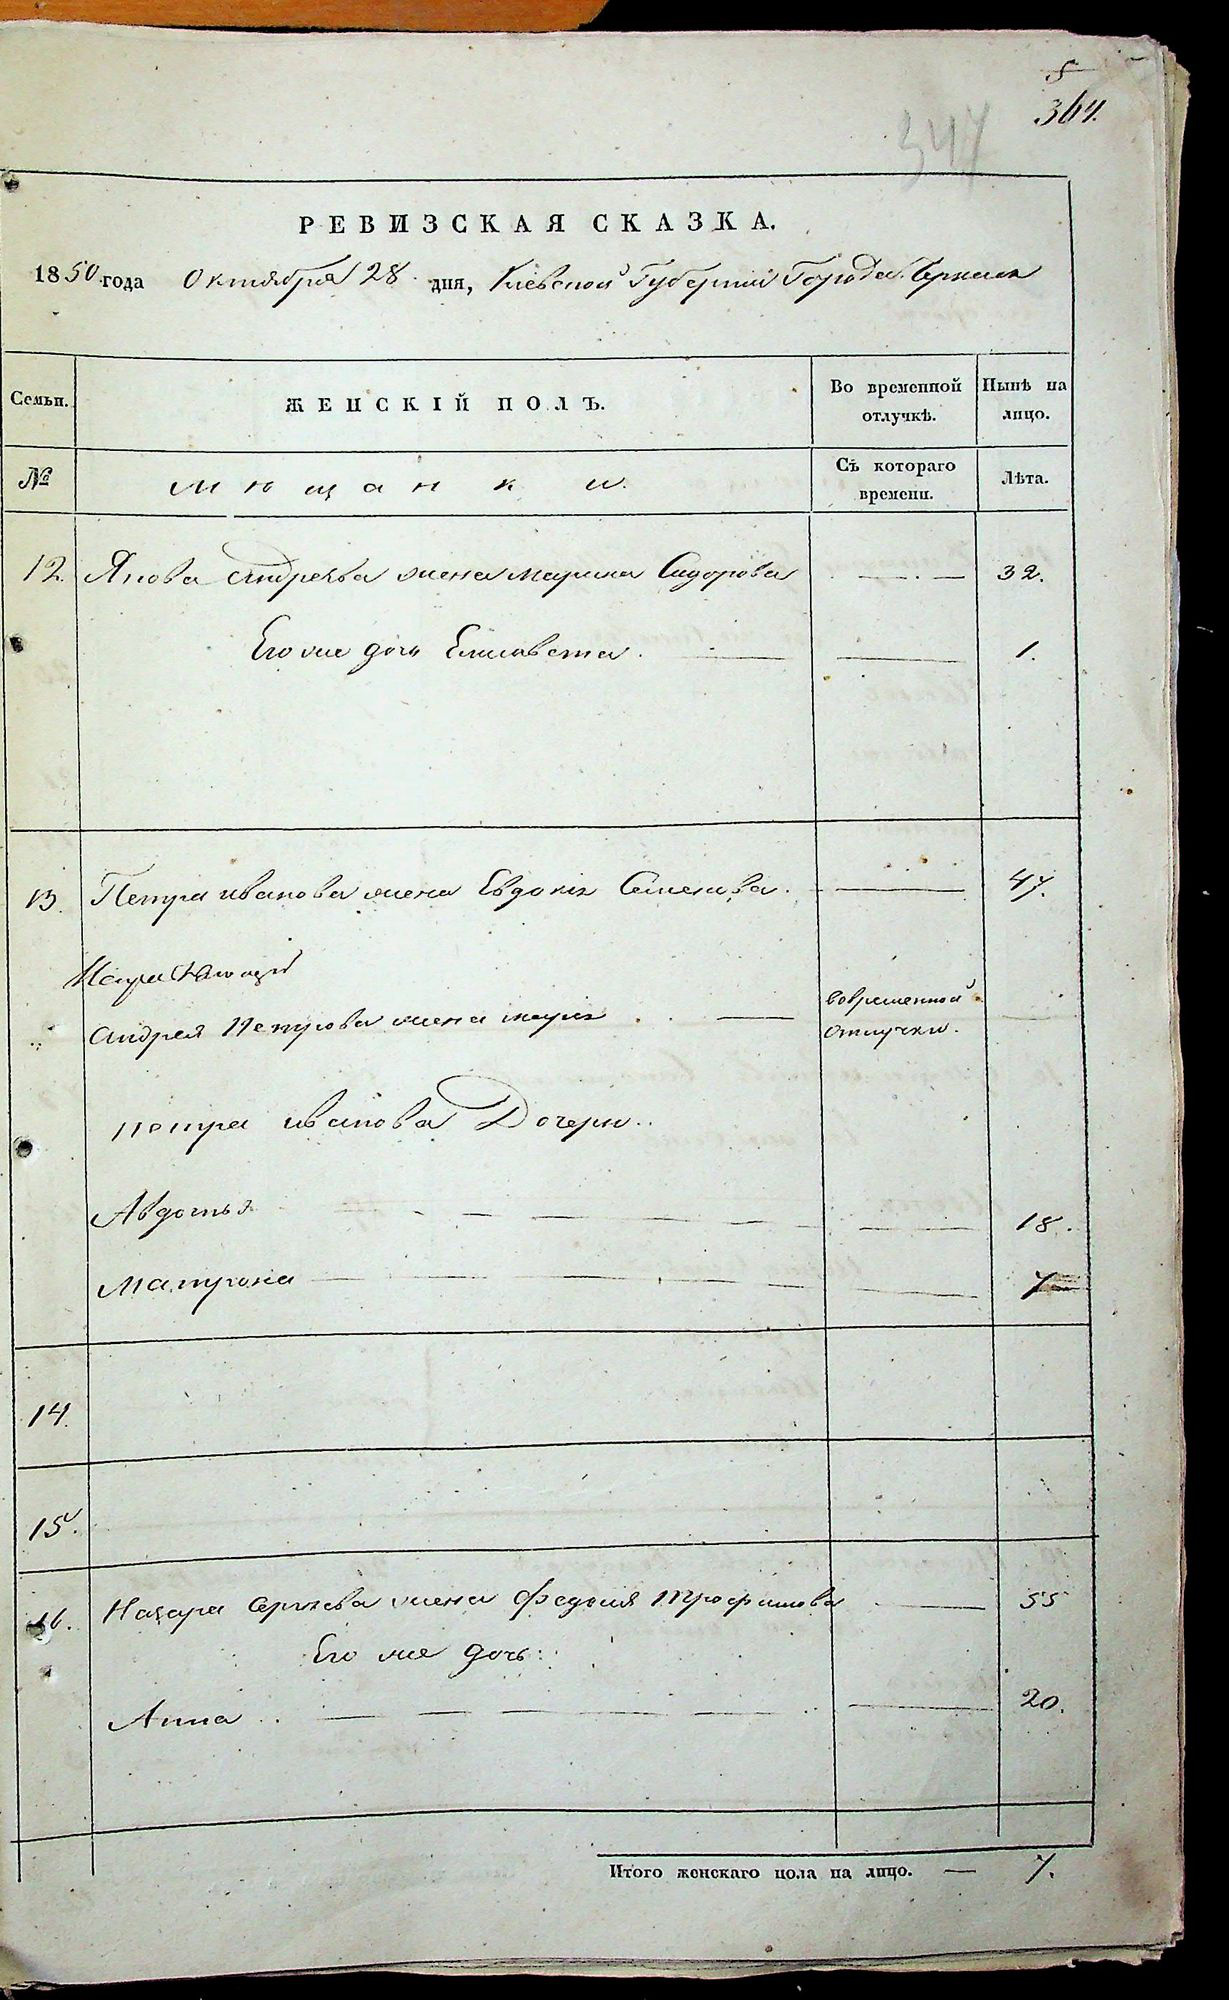 8
364.
347
РЕВИЗСКАЯ СКАЗКА.
1850 года Октября 28 дня, Кіевской Губерніи Города Черкасъ
Семьи. ЖЕНСКІЙ ПОЛЪ. Во временной отлучкѣ. Нынѣ на лицо.
№ Мѣщанки. Съ котораго времени. Лѣта.
12. Якова Андреева жена Марина Сидорова 32.
Его же дочь Елисавета. 1.
13. Петра Иванова жена Евдокія Семенова. 47.
Андрея Петрова жена Марія вовременной отлучки.
Петра Иванова Дочери.
Авдотья 18.
Матрона 7
14.
15.
16. Назара Сергѣева жена Федосія Трофимова 55
Его же дочь:
Анна 20.
Итого женскаго пола на лицо. — 7.